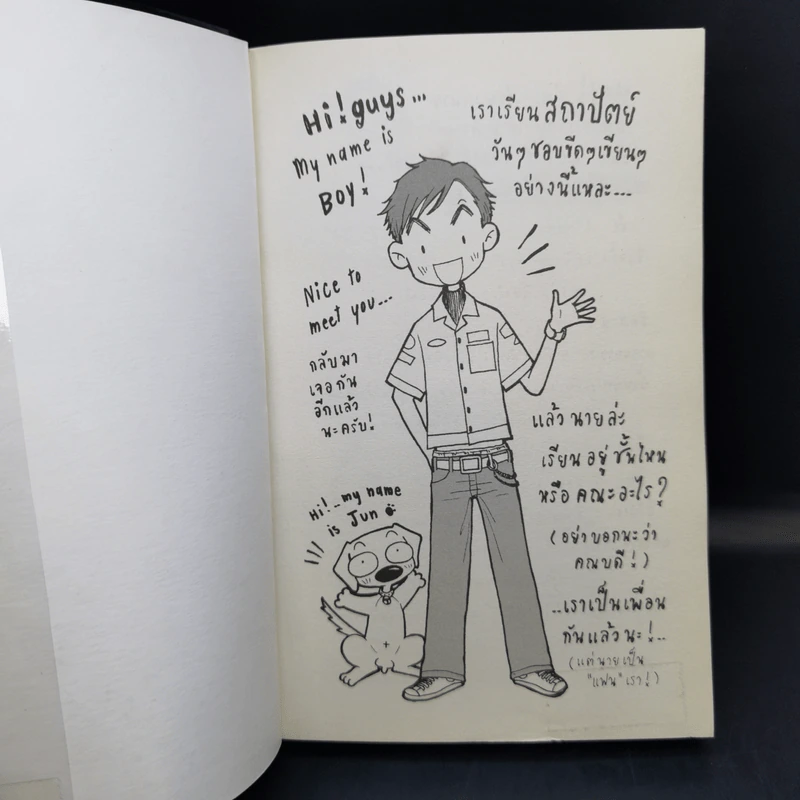 Hi! guys...
My name is
BOY!
เราเรียน สถาปัตย์
วันๆ ชอบขีดๆ เขียนๆ
อย่างนี้แหละ...
Nice to
meet you...
กลับมา
เจอกัน
อีกแล้ว
นะครับ!
Hi!_my name
is Jun
แล้ว นายล่ะ
เรียน อยู่ ชั้นไหน
หรือ คณะอะไร?
(อย่าบอกนะว่า
คณบดี!)
..เราเป็นเพื่อน
กันแล้วนะ!..
(แต่นายเป็น
"แฟน" เรา!)